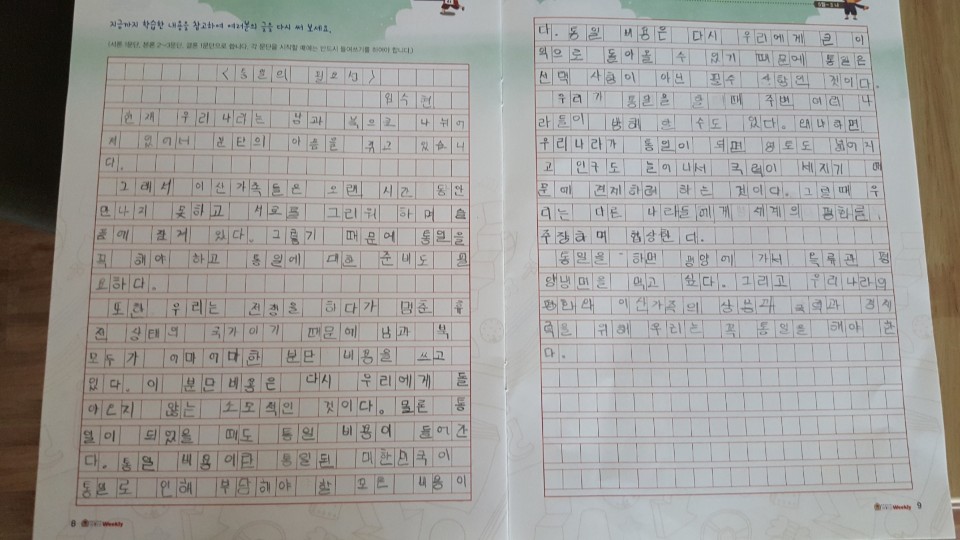 지금까지 학습한 내용을 참고하여 여러분의 글을 다시 써 보세요.
(서론 1문단, 본론 2~3문단, 결론 1문단으로 씁니다. 각 문단을 시작할 때에는 반드시 들여쓰기를 하여야 합니다.)
<통일의 필요성>
현재 우리 나라는 남과 북으로 나뉘어
져 있어서 분단의 아픔을 겪고 있습니
다.
그래서 이산가족들은 오랜 시간 동안
만나지 못하고 서로를 그리워 하며 슬
픔에 잠겨 있다. 그렇기 때문에 통일을
꼭 해야 하고 통일에 대한 준비도 필
요하다.
또한 우리는 전쟁을 하다가 멈춘 휴
전 상태의 국가이기 때문에 남과 북
모두가 어마어마한 분단 비용을 쓰고
있다. 이 분단비용은 다시 우리에게 돌
아오지 않는 소모적인 것이다. 물론 통
일이 되었을 때도 통일 비용이 들어간
다. 통일 비용이란 통일된 대한민국이
통일로 인해 부담해야 할 모든 비용이
6 Weekly
다. 통일 비용은 다시 우리에게 큰 이
익으로 돌아올 수 있기 때문에 통일은
선택 사항이 아닌 필수 사항인 것이다.
우리가 통일을 할 때 주변 여러 나
라들이 방해 할 수도 있다. 왜냐하면
우리나라가 통일이 되면 영토도 넓어지
고 인구도 늘어나서 국력이 세지기 때
문에 견제하려 하는 것이다. 그럴때 우
리는 다른 나라들에게 세계의 평화를
주장하며 협상한다.
통일을 하면 평양에 가서 옥류관 평
양냉면을 먹고 싶다. 그리고 우리나라의
평화와 이산가족의 상봉과 국력과 경제
력을 위해 우리는 꼭 통일을 해야 한
다.
Weekly 9